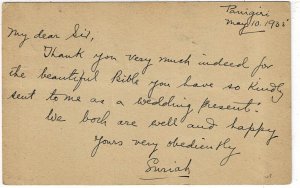 May 10. 1935
My dear Sir,
Thank you very much indeed for
the beautiful Bible you have so kindly
sent to me as a wedding present.
We both are well and happy
Yours very obediently
Suriah